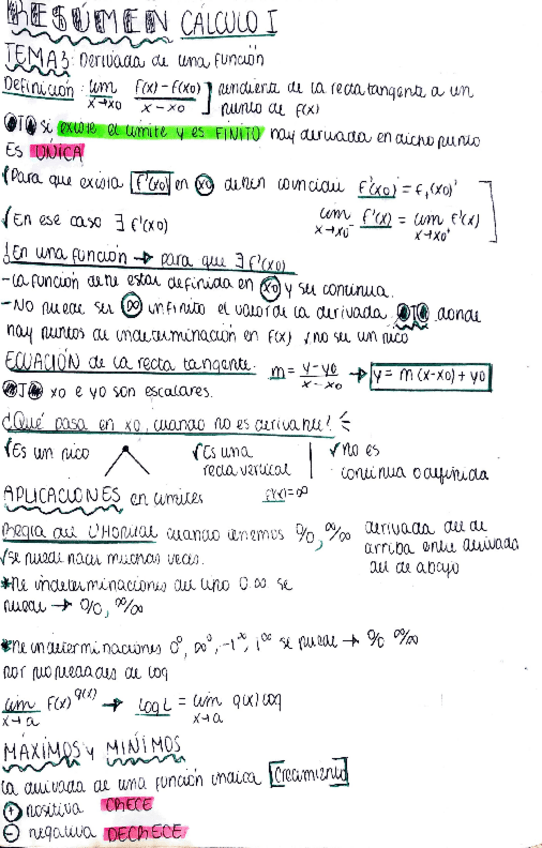 RESÚMEN CÁLCULO I
TEMA3: Derivada de una función
Definición: lim x→x0 F(x) - F(x0) / x - x0 ] Pendiente de la recta tangente a un punto de F(x)
OJO si existe el límite y es FINITO hay derivada en dicho punto
Es ÚNICA
√Para que exista f'(x0) en x0 deben coincidir f'(x0)⁻ = f'(x0)⁺
√En ese caso ∃ f'(x0)
lim x→x0⁻ f'(x) = lim x→x0⁺ f'(x)
¿En una función → para que ∃ f'(x0)
-La función debe estar definida en x0 y ser continua.
-No puede ser ∞ infinito el valor de la derivada. OJO donde
hay puntos de indeterminación en F(x) y no ser un pico
ECUACIÓN de la recta tangente. m = y-y0 / x-x0 → y = m(x-x0) + y0
OJO x0 e y0 son escalares.
¿Qué pasa en x0, cuando no es derivable?
√Es un pico
√Es una recta vertical
f'(x)=∞
√no es continua o definida
APLICACIONES en límites
Regla de L'Hopital cuando tenemos 0/0, ∞/∞ derivada del de arriba entre derivada del de abajo
√se puede hacer muchas veces.
*De indeterminaciones del tipo 0·∞ se
puede → 0/0, ∞/∞
*De indeterminaciones 0⁰, ∞⁰, 1^∞ se puede → 0/0 ∞/∞
por propiedades de log
lim x→a F(x)^g(x) → log L = lim x→a g(x) log
MÁXIMOS y MÍNIMOS
La derivada de una función indica [Crecimiento]
+ positiva CRECE
- negativa DECRECE